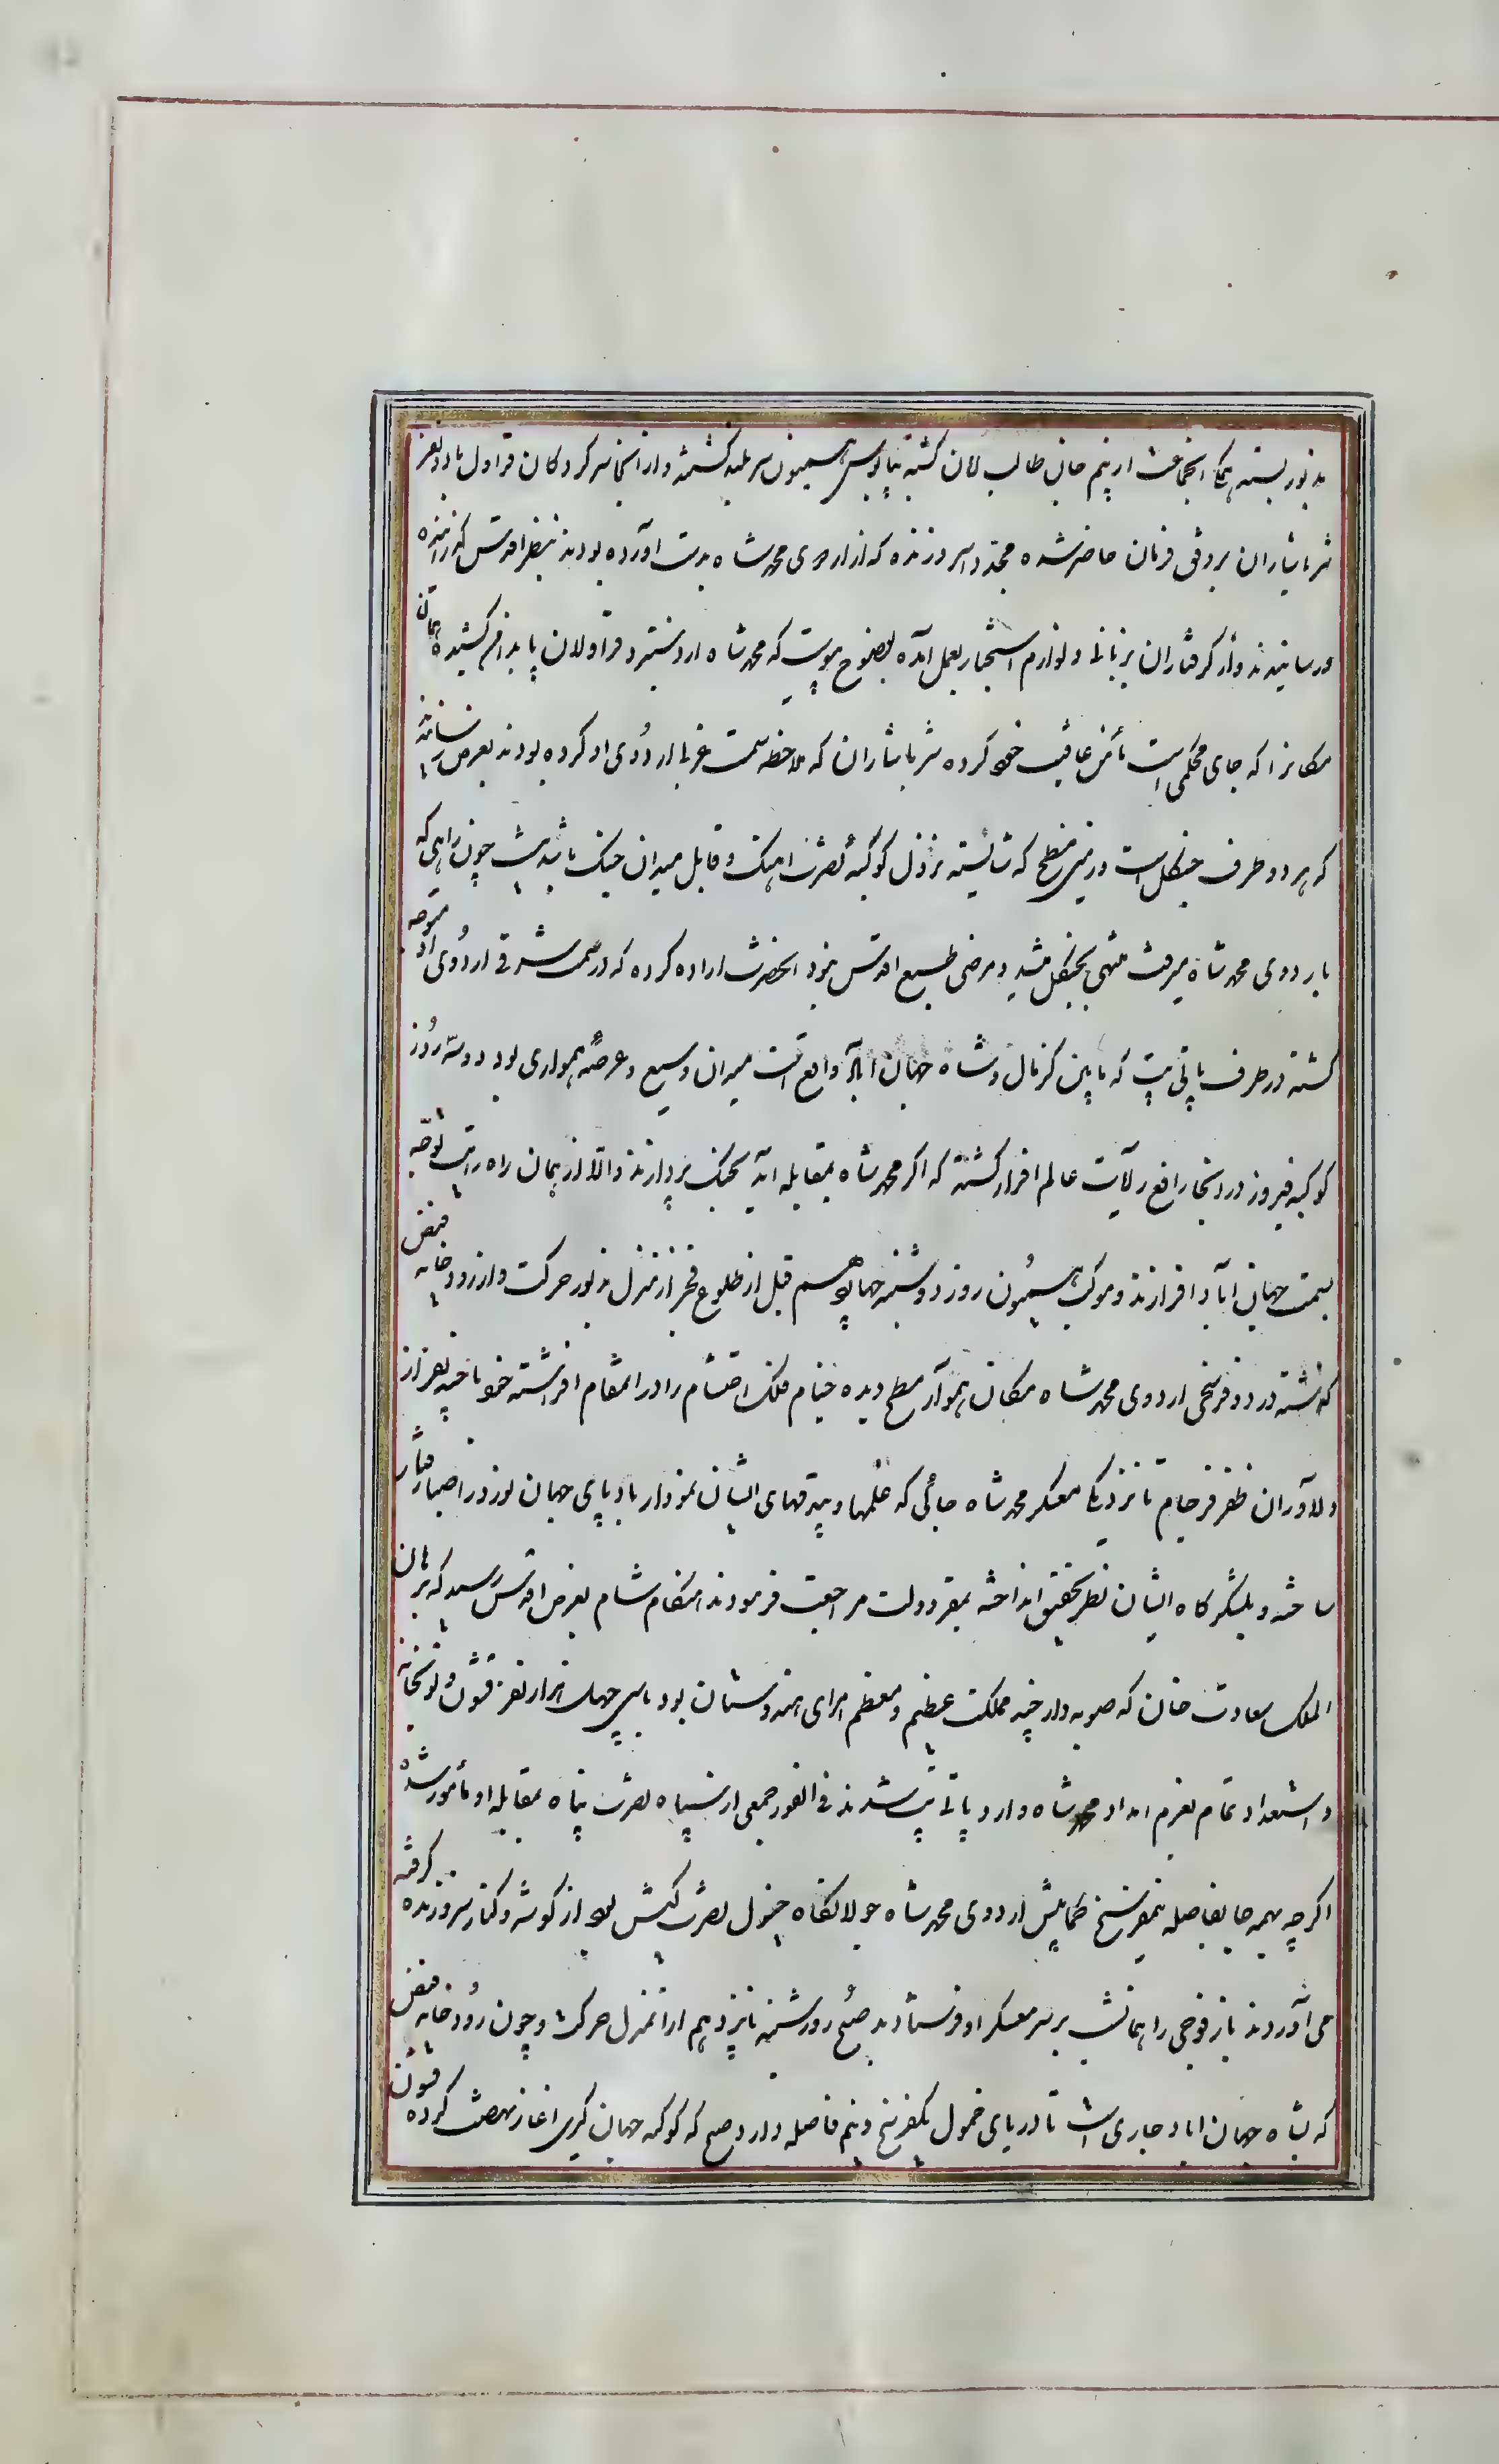 مذبور بسته همکی انجماعت از بیم جان طالب امان کشته بپابوس همیون سربلند کشتند و از آنجا سرکردکان قراول با دو نفر
شربایشاران بر وفق فرمان حاضر شده مجددا سر و زنده که از اردوی محمد شاه بدست آورده بودند بنظر اقدس کذرانیده
و رسانیدند و از کرفتاران زبانها و لوازم استخبار بعمل آمده بوضوح پیوست که محمد شاه از دستبرد قراولان پا بدامن کشیده همان
مکانرا که جای محکمی است مأمن عاقیت خود کرده شربایشاران که ملاحظه سمت غربی اردوی او کرده بودند بعرض رسانیدند
که هر دو طرف جنکل است و زمین مسطح که شایسته نزول کوکبهٔ نصرت اهنک و قابل میدان جنک باشد نیست چون راهی که
باردوی محمد شاه میرفت منتهی بجنکل میشد و مرضی طبع اقدس نبود انحضرت اراده کرده که در سمت شرقی اردوی او متوجه
کشته در طرف پانی پت که مابین کرنال و شاه جهان آباد واقع است میدان وسیع و عرصهٔ همواری بود دو سه روز
کوکبه فیروز در انجا رافع رایات عالم افراز کشته که اکر محمد شاه بمقابله آید بجنک پردازند و الا از همان راه رایت توجه
بسمت جهان اباد افرازند و موکب همیون روز دوشنبه چهاردهم قبل از طلوع فجر از منزل مزبور حرکت و از رودخانه فیض
کذشته در دو فرسخی اردوی محمد شاه مکان هموار مسطح دیده خیام فلک احتشام را در انمقام افراشته خود با چند نفر از
دلاوران ظفر فرجام تا نزدیکی معسکر محمد شاه جائی که علمها و بیدقهای ایشان نمودار بادپای جهان نورد را صبا رفتار
ساخته و بلشکر کاه ایشان نظر تحقیق انداخته بمقر دولت مراجعت فرمودند هنکام شام بعرض اقدس رسید که برهان
الملک سعادت خان که صوبه دار چند مملکت عظیم و معظم امرای هندوستان بود با سی چهل هزار نفر قشون و توپخانه
و استعداد تمام بعزم امداد محمد شاه وارد پانی پت شدند فی الفور جمعی از سپاه نصرت پناه بمقابله او مأمور شدند
اکرچه همه جا بفاصله نیمفرسخ کمابیش اردوی محمد شاه جولانکاه خیول نصرت کیش بود از کوشه و کنار سر و زنده کرفته
می آوردند باز فوجی را همانشب بر سر معسکر او فرستادند صبح روز سه شنبه پانزدهم از آنمنزل حرکت و چون رودخانه فیض
که بشاه جهان اباد جاری است تا دریای خمول یکفرسخ و نیم فاصله دارد صبح که کوکبه جهان کیری اغاز نهضت کرده قشون